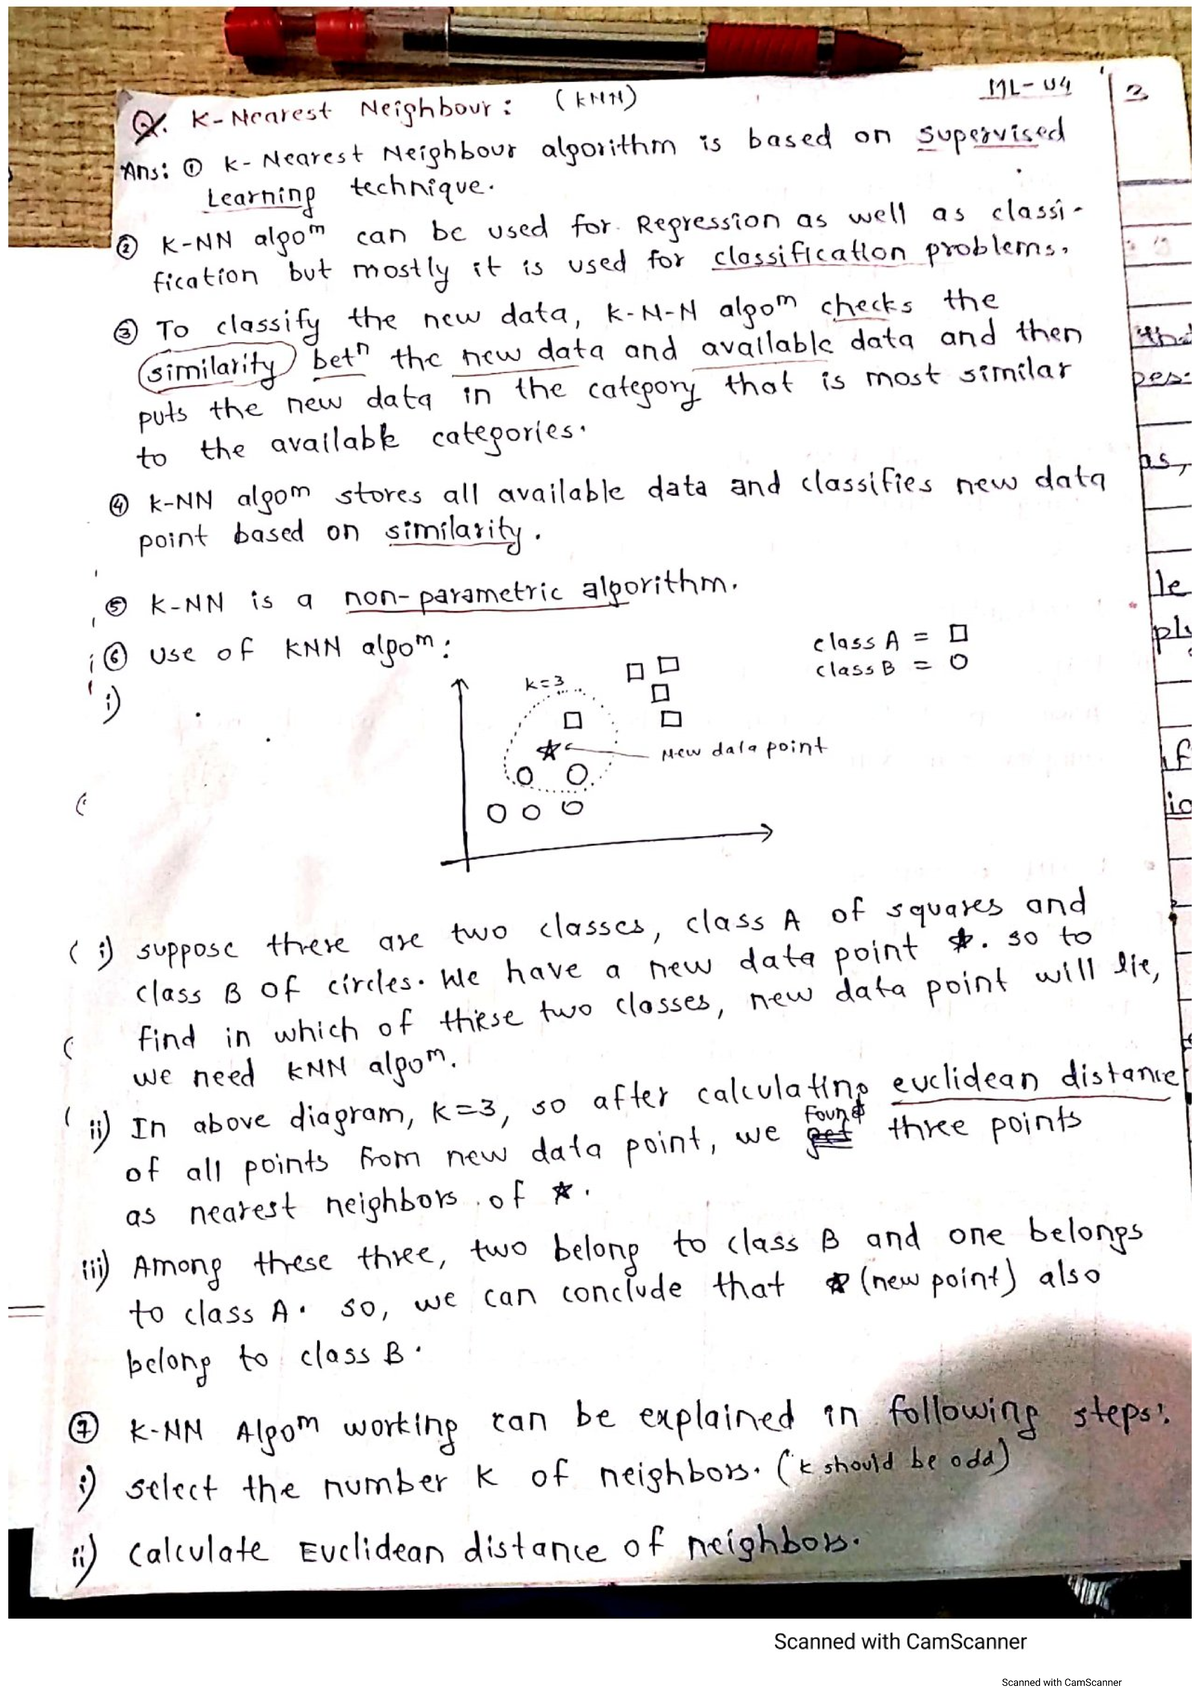 Q. K-Nearest Neighbour: (KNN)
ML-U4
3
Ans: ① K-Nearest Neighbour algorithm is based on supervised
Learning technique.
② K-NN algoᵐ can be used for Regression as well as classi-
fication but mostly it is used for classification problems.
③ To classify the new data, K-N-N algoᵐ checks the
similarity betⁿ the new data and available data and then
puts the new data in the category that is most similar
to the available categories.
④ K-NN algoᵐ stores all available data and classifies new data
point based on similarity.
⑤ K-NN is a non-parametric algorithm.
⑥ Use of KNN algoᵐ:
class A = □
class B = ○
i)
K=3
New data point
i) suppose there are two classes, class A of squares and
class B of circles. We have a new data point ☆. so to
find in which of these two classes, new data point will lie,
we need KNN algoᵐ.
ii) In above diagram, K=3, so after calculating euclidean distance
of all points from new data point, we found three points
as nearest neighbors of ☆.
iii) Among these three, two belong to class B and one belongs
to class A. so, we can conclude that ☆ (new point) also
belong to class B.
⑦ K-NN Algoᵐ working can be explained in following steps:
i) select the number K of neighbors. (K should be odd)
ii) calculate Euclidean distance of neighbors.
Scanned with CamScanner
Scanned with CamScanner